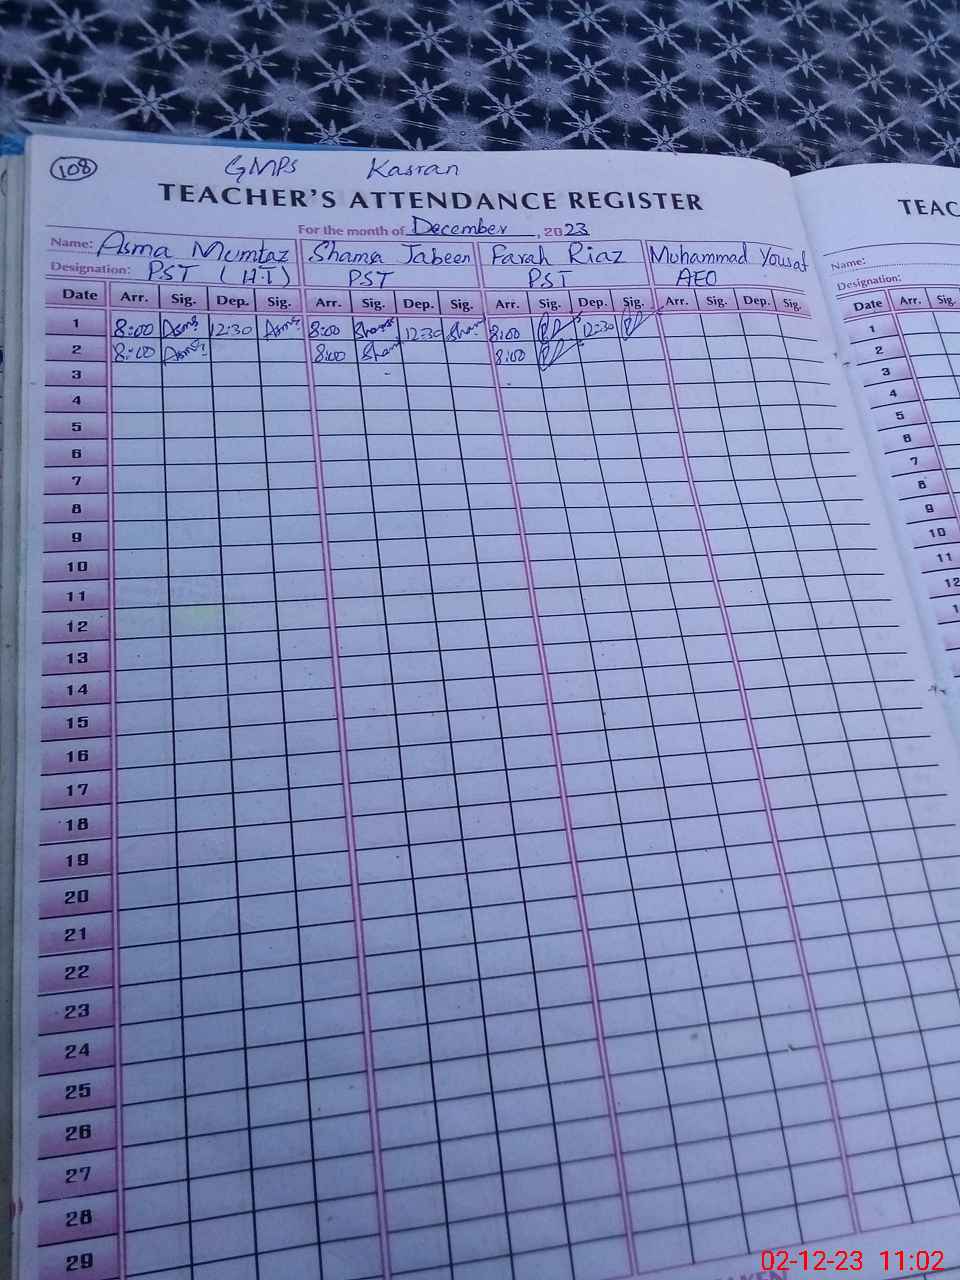 108
GMPS Kasran
TEACHER'S ATTENDANCE REGISTER
For the month of December, 2023
Name: Asma Mumtaz Shamsa Jabeen Farah Riaz Muhammad Yousaf
Designation: PST (H.T) PST PST AEO
Date Arr. Sig. Dep. Sig. Arr. Sig. Dep. Sig. Arr. Sig. Dep. Sig. Arr. Sig. Dep. Sig.
1 8:00 Asma 12:30 Asma 8:00 Shamsa 12:30 Sham 8:00 12:30
2 8:00 Asma 8:00 Sham 8:00
3
4
5
6
7
8
9
10
11
12
13
14
15
16
17
18
19
20
21
22
23
24
25
26
27
28
29
TEAC
Name:
Designation:
Date Arr. Sig.
1
2
3
4
5
6
7
8
9
10
11
12
02-12-23 11:02